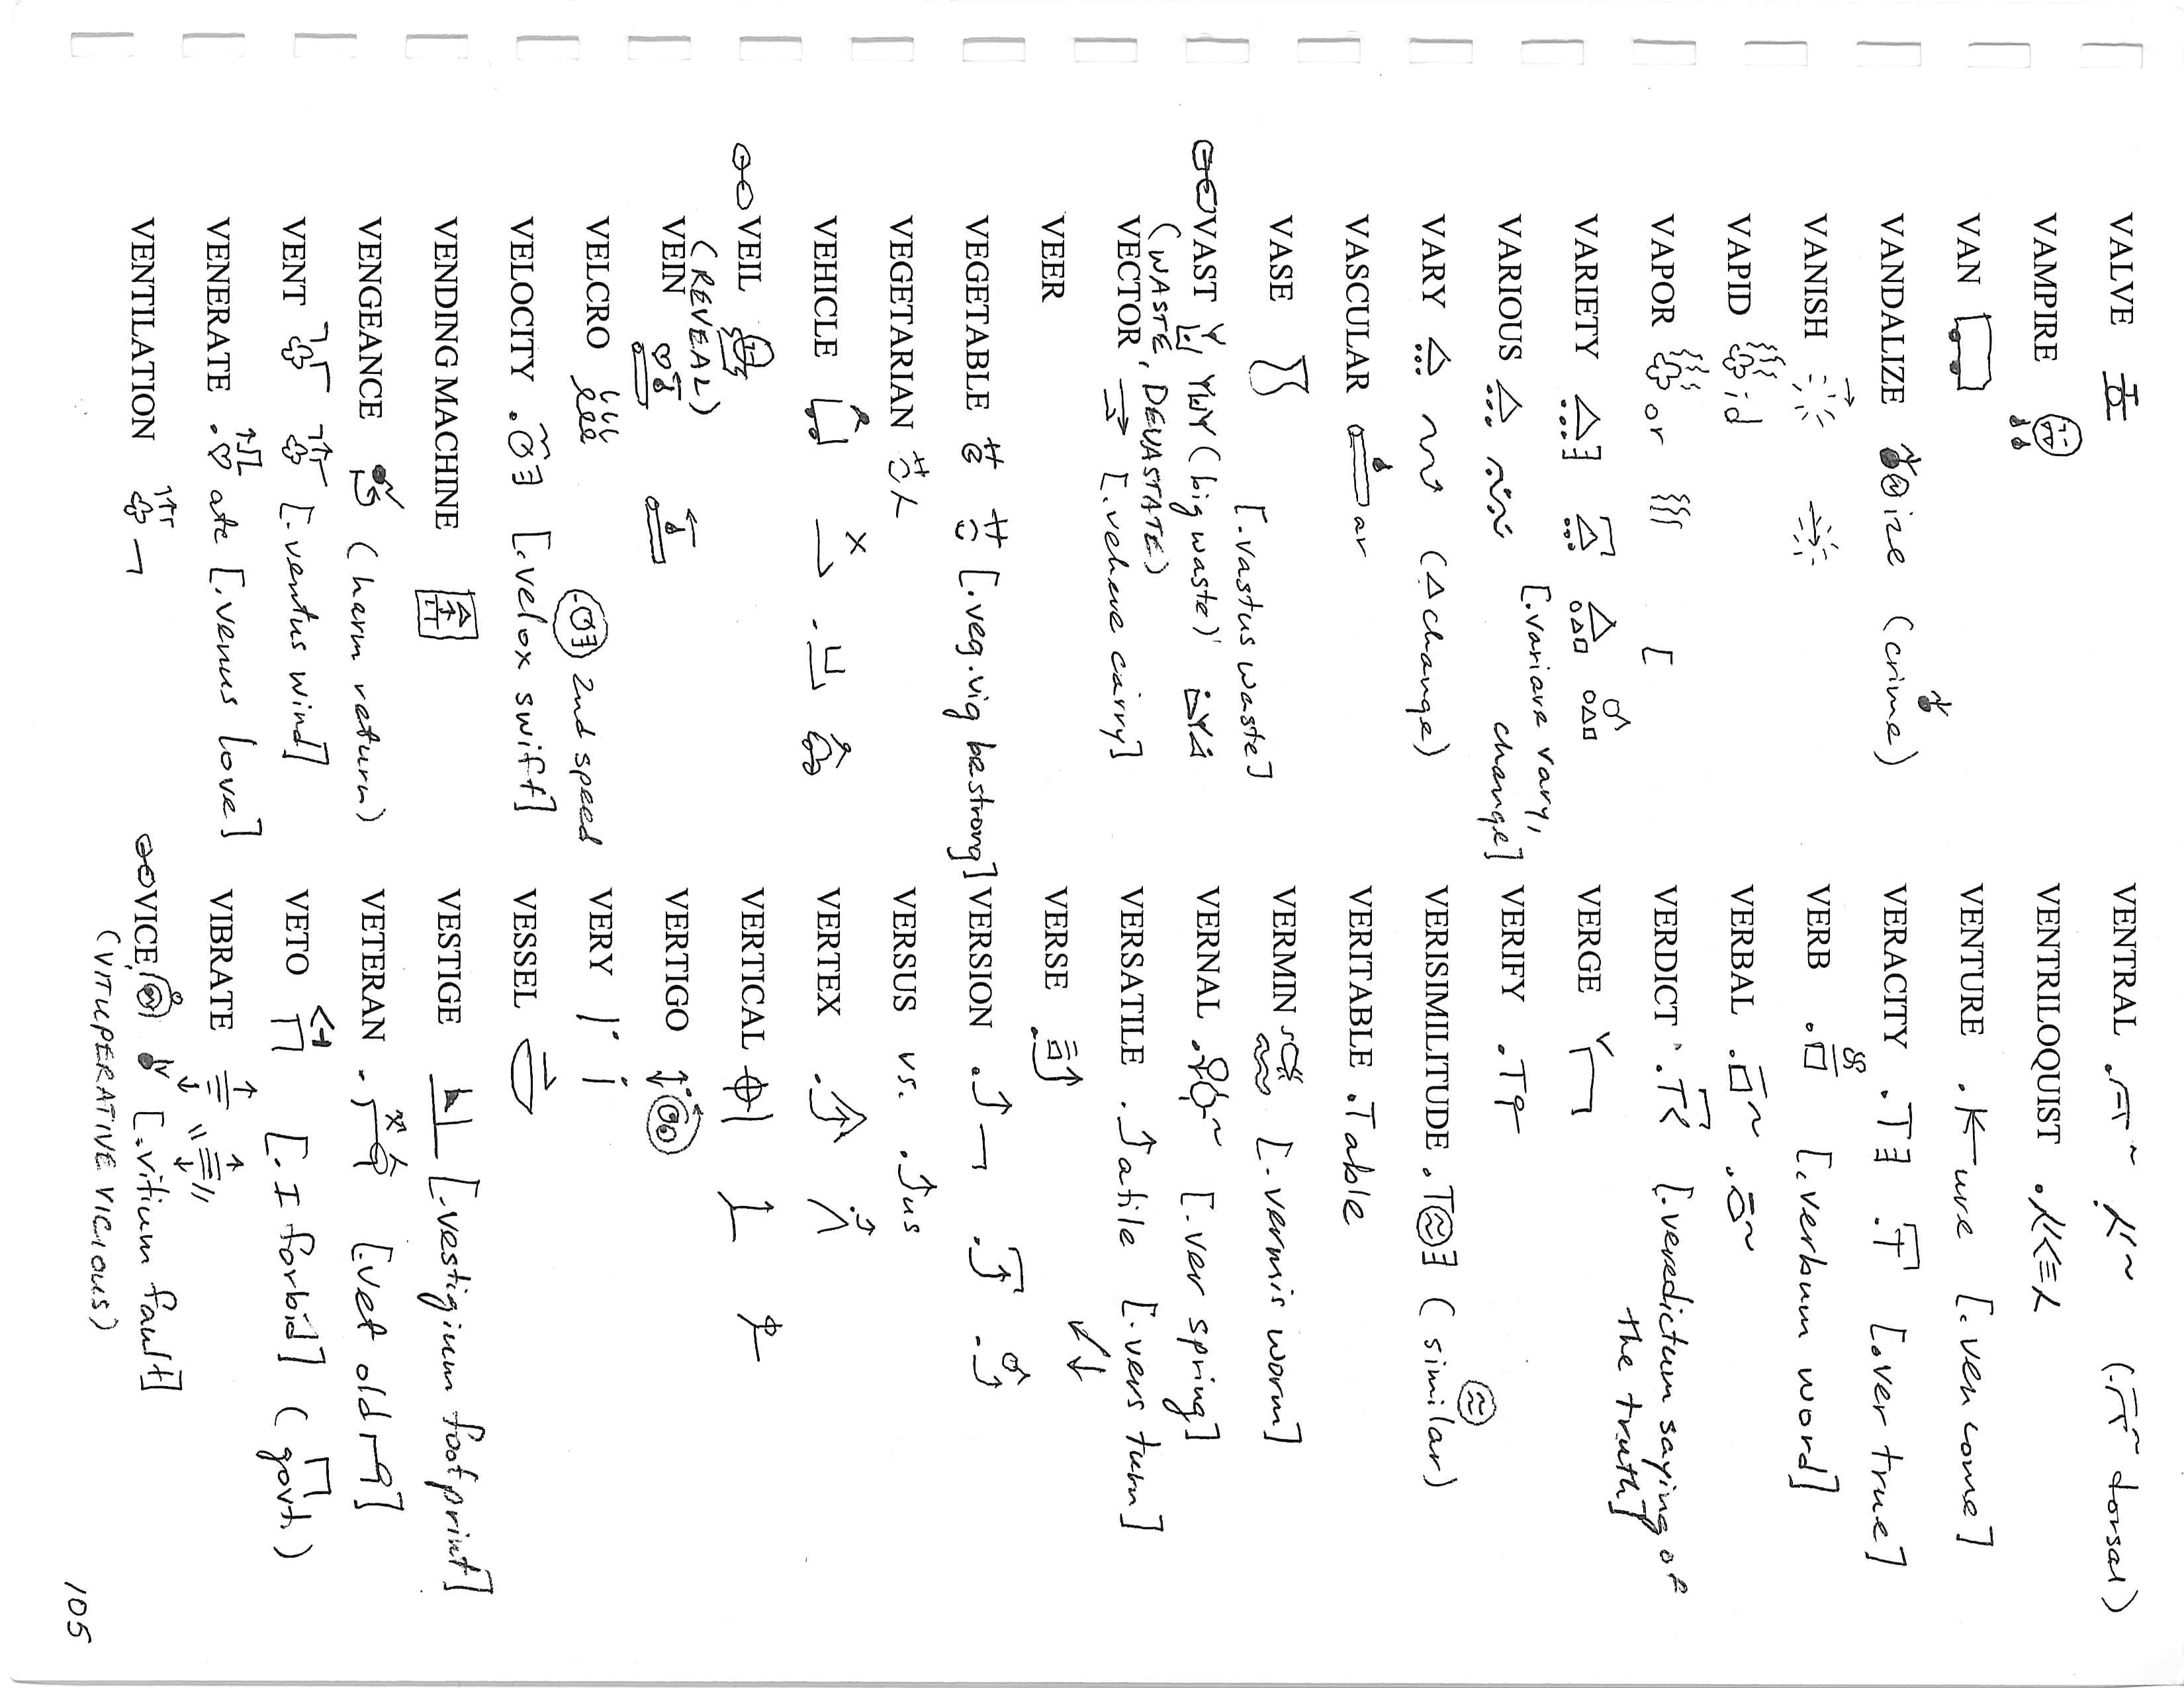 VALVE
VAMPIRE
VAN
VANDALIZE ize (crime)
VANISH
VAPID id
VAPOR or [
VARIETY
VARIOUS [.variare vary, change]
VARY (Δ change)
VASCULAR ar
VASE [.vastus waste]
VAST (big waste)
(WASTE, DEVASTATE)
VECTOR → [.vehere carry]
VEER
VEGETABLE [.veg.vig be strong]
VEGETARIAN
VEHICLE
VEIL
(REVEAL)
VEIN
VELCRO 2nd speed
VELOCITY [.velox swift]
VENDING MACHINE
VENGEANCE (harm return)
VENT [.ventus wind]
VENERATE ate [.venus love]
VENTILATION
VENTRAL (dorsal)
VENTRILOQUIST
VENTURE ure [.ven come]
VERACITY [.ver true]
VERB [.verbum word]
VERBAL
VERDICT [.veredictum saying of the truth]
VERGE
VERIFY
VERISIMILITUDE (similar)
VERITABLE .Table
VERMIN [.vermis worm]
VERNAL [.ver spring]
VERSATILE atile [.vers turn]
VERSE
VERSION
VERSUS vs. us
VERTEX
VERTICAL
VERTIGO
VERY
VESSEL
VESTIGE [.vestigium footprint]
VETERAN [.vet old]
VETO [.I forbid] (govt.)
VIBRATE
VICE [.vitium fault]
(VITUPERATIVE VICIOUS)
105